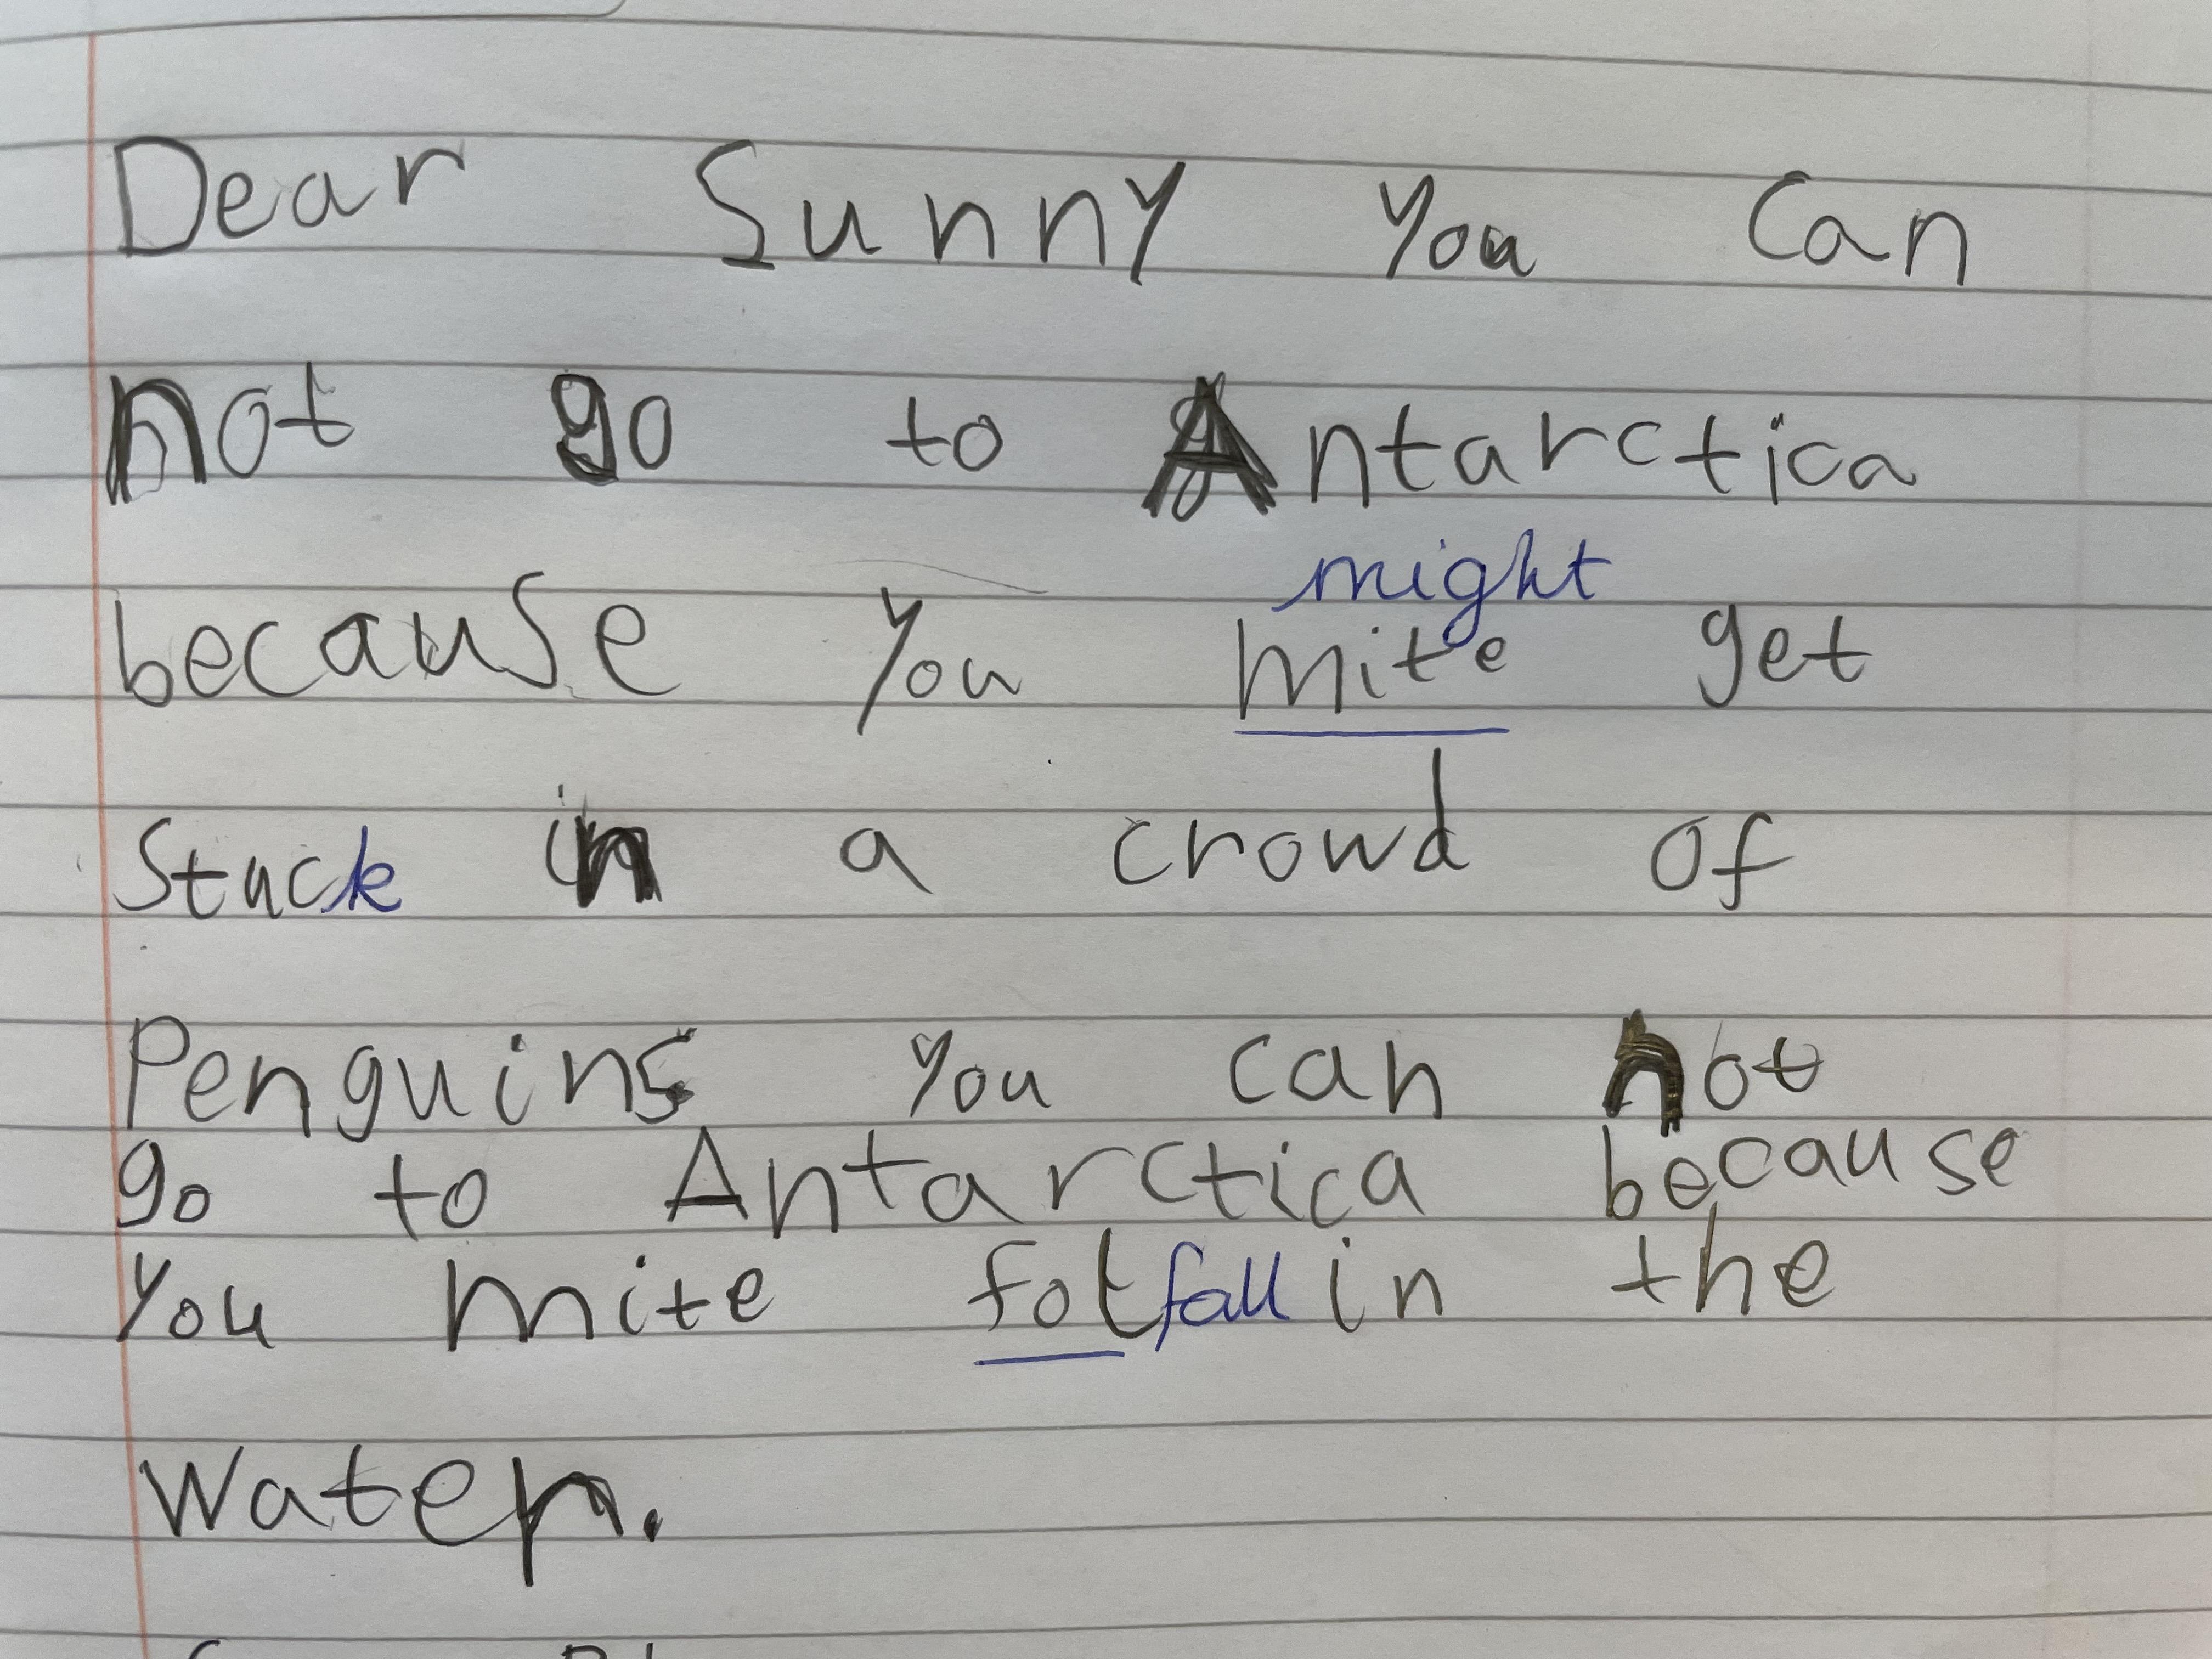 Dear Sunny you can
not go to Antarctica
might
because you mite get
Stuck in a crowd of
Penguins you can not
go to Antarctica because
you mite fot fall in the
water.